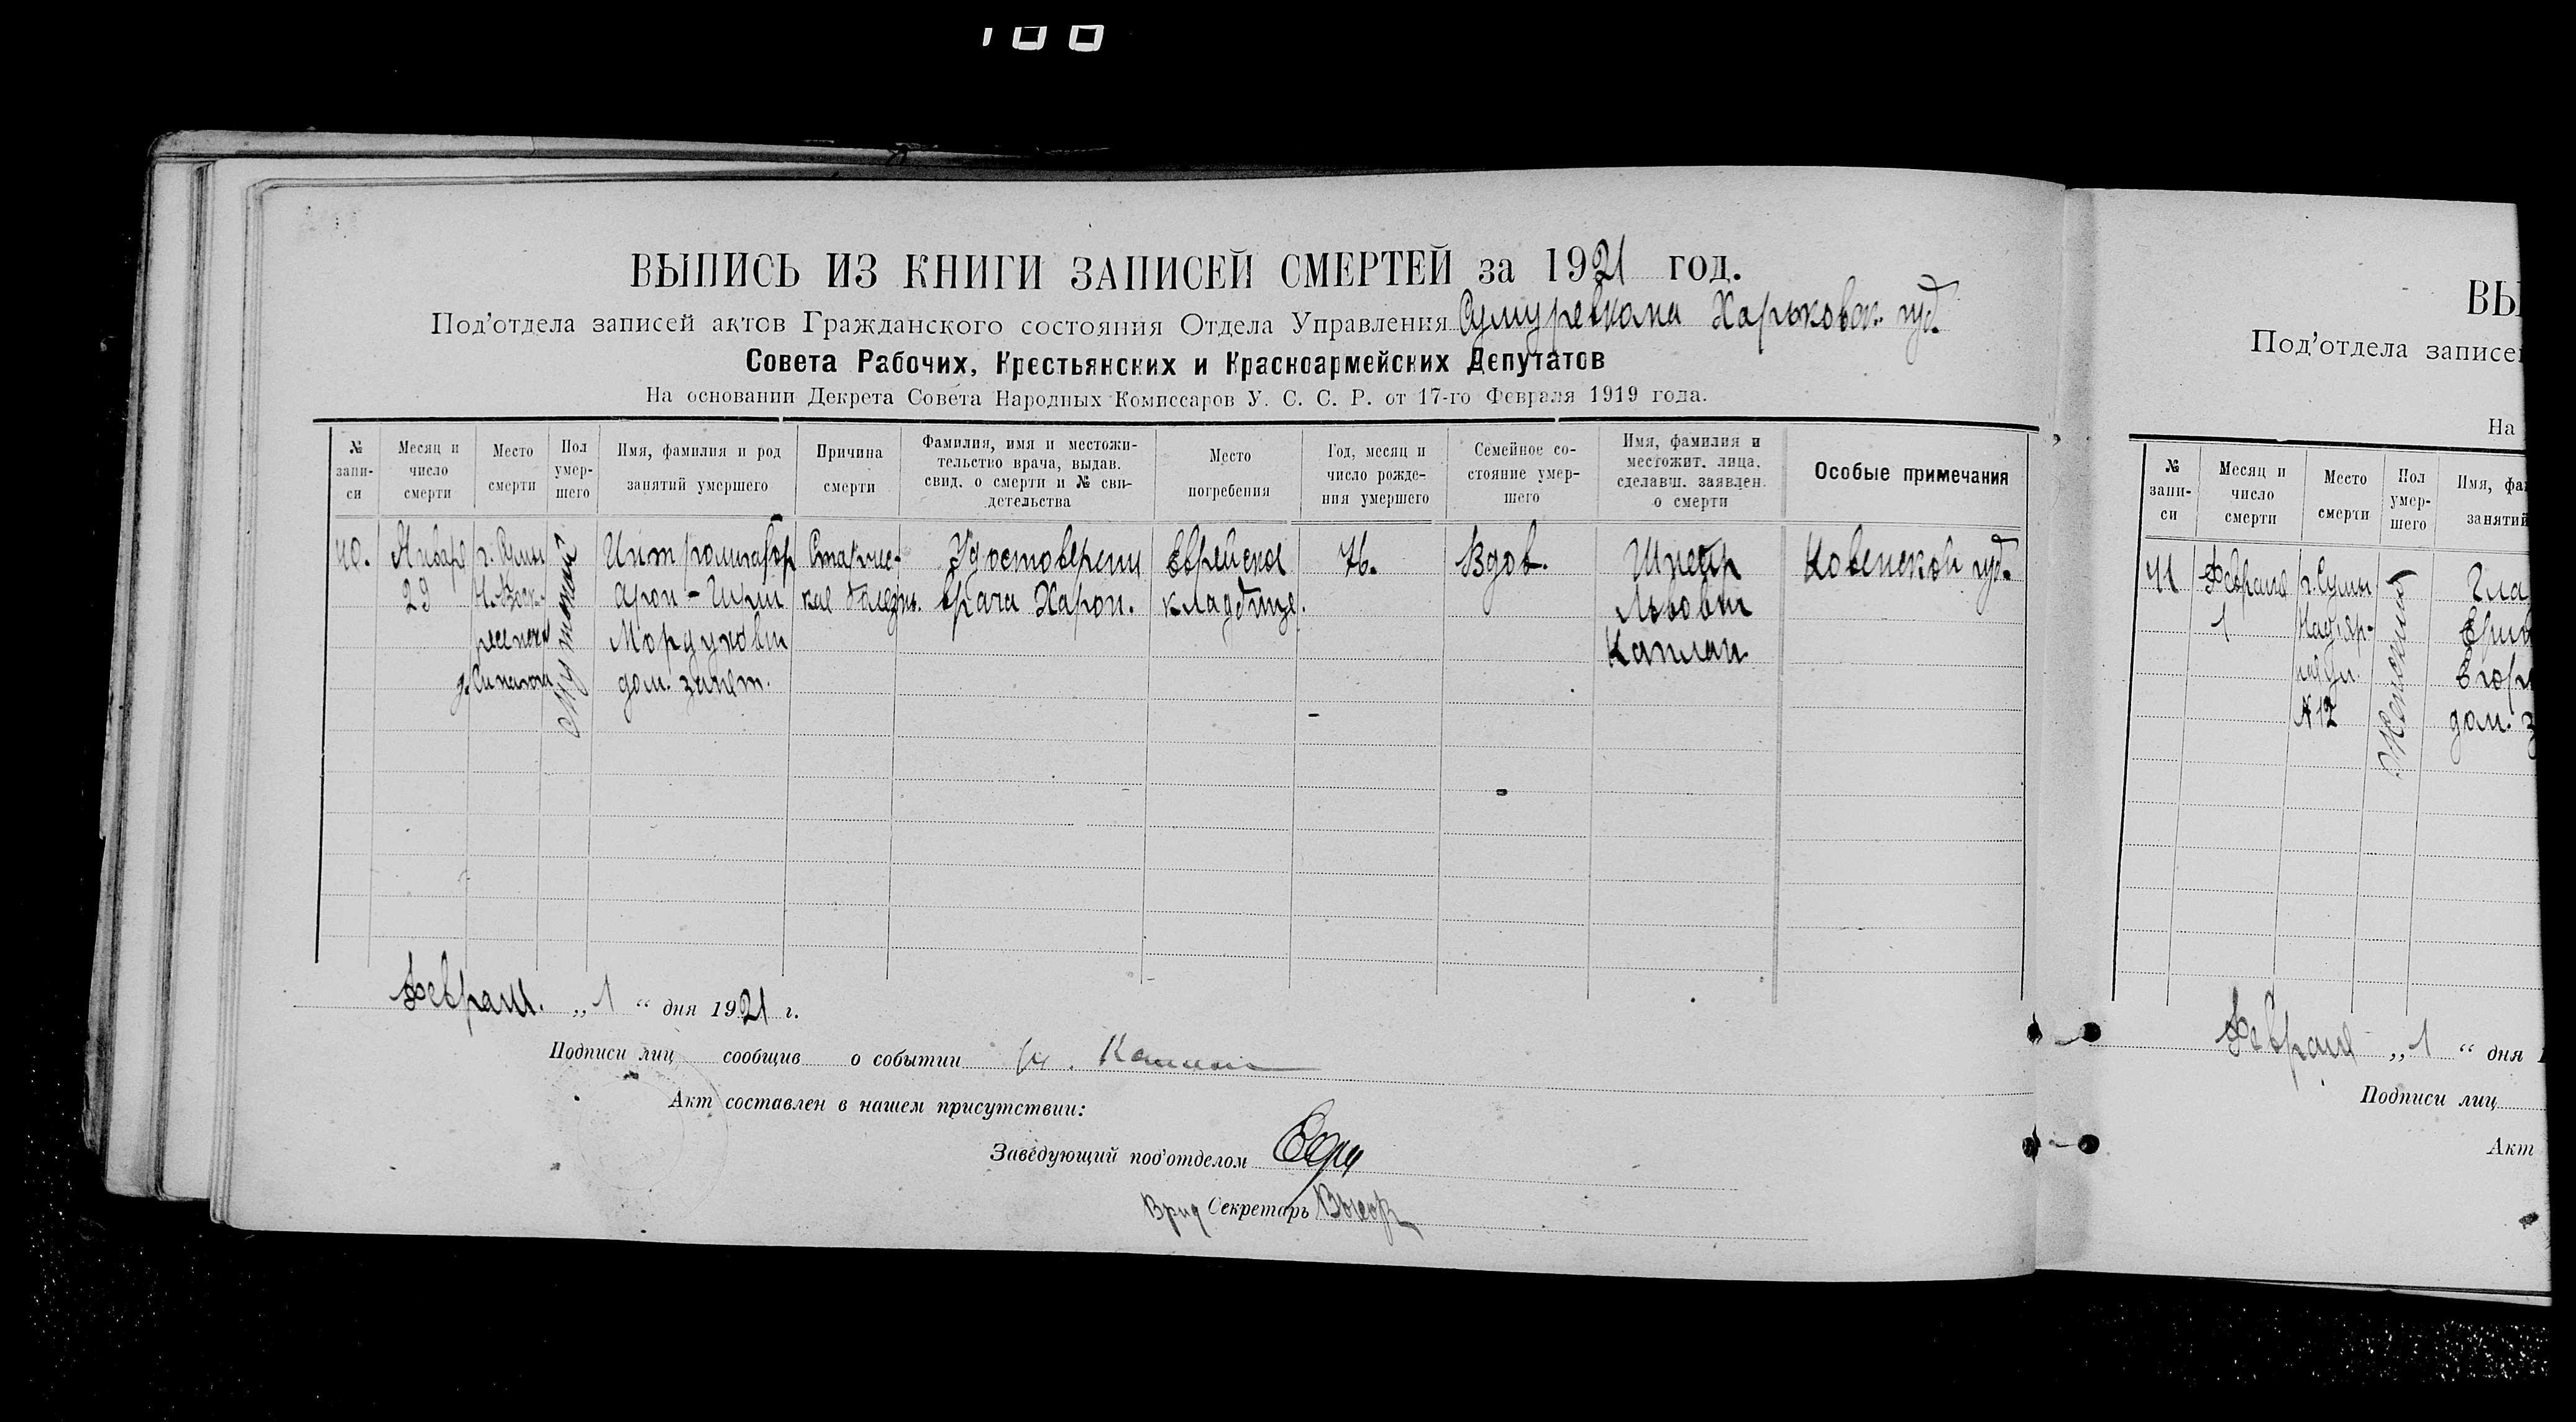 100
ВЫПИСЬ ИЗ КНИГИ ЗАПИСЕЙ СМЕРТЕЙ за 1921 год.
Под'отдела записей актов Гражданского состояния Отдела Управления Сумуревкома Харьковск. губ.
Совета Рабочих, Крестьянских и Красноармейских Депутатов
На основании Декрета Совета Народных Комиссаров У. С. С. Р. от 17-го Февраля 1919 года.
№ запи-
си
Месяц и
число
смерти
Место
смерти
Пол
умер-
шего
Имя, фамилия и род
занятий умершего
Причина
смерти
Фамилия, имя и местожи-
тельство врача, выдав.
свид. о смерти и № сви-
детельства
Место
погребения
Год, месяц и
число рожде-
ния умершего
Семейное со-
стояние умер-
шего
Имя, фамилия и
местожит. лица,
сделавш. заявлен.
о смерти
Особые примечания
40.
Января
29
г. Сумы
Н. Воск-
ресенск
Мужской
Арон - Гирш
Мордухович
дом. занят.
Старчес-
кая болезнь.
Удостоверении
врача Харон.
Еврейское
кладбище.
76.
Вдов.
Львович
Каплан
Ковенской губ.
Февраля. „ 1 “ дня 1921 г.
Подписи лиц сообщив о событии Каплан
Акт составлен в нашем присутствии:
Заведующий под'отделом
Врид Секретарь
ВЫ
Под'отдела записей
На
№
запи-
си
Месяц и
число
смерти
Место
смерти
Пол
умер-
шего
Имя, фа
занятий
41
Февраля
1
г. Сумы
№ 12
Женский
дом. з
Февраля „ 1 “ дня 1
Подписи лиц
Акт